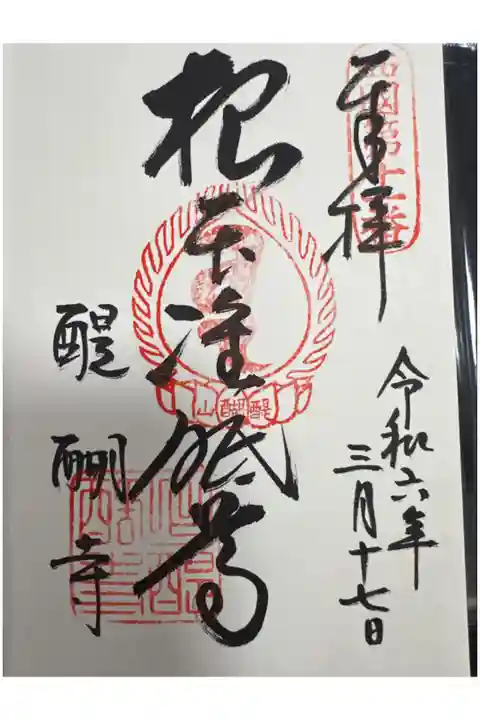 奉拝
西国第十一番
令和六年
三月十七日
根本准胝尊
醍醐山
醍醐寺